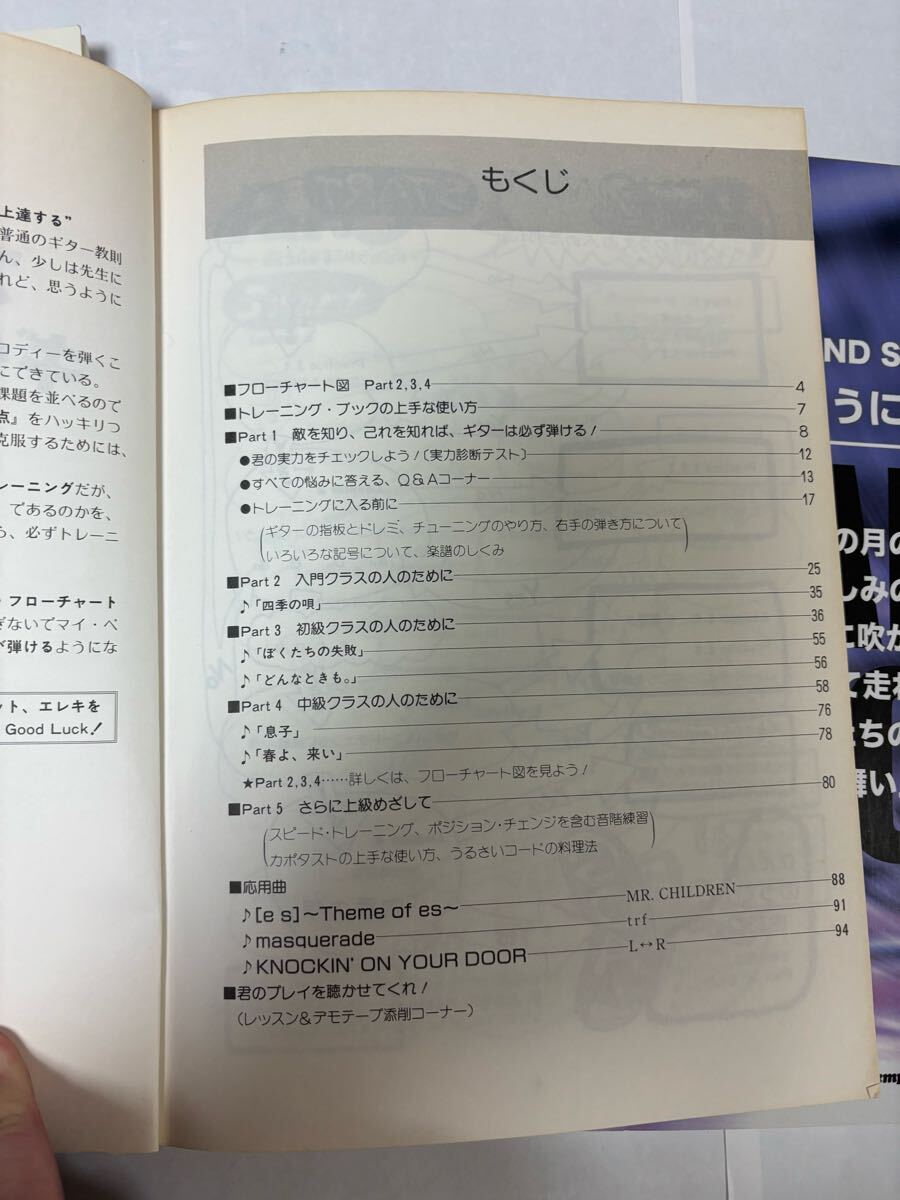 上達する”
普通のギター教則
ん、少しは先生に
れど、思うように
ロディーを弾くこ
にできている。
課題を並べるので
点』をハッキリつ
克服するためには、
レーニングだが、
であるのかを、
ら、必ずトレーニ
フローチャート
ぎないでマイ・ペ
が弾けるようにな
ット、エレキを
Good Luck!
もくじ
■フローチャート図 Part2,3,4 4
■トレーニング・ブックの上手な使い方 7
■Part 1 敵を知り、己れを知れば、ギターは必ず弾ける! 8
●君の実力をチェックしよう!〔実力診断テスト〕 12
●すべての悩みに答える、Q&Aコーナー 13
●トレーニングに入る前に 17
(ギターの指板とドレミ、チューニングのやり方、右手の弾き方について
いろいろな記号について、楽譜のしくみ)
■Part 2 入門クラスの人のために 25
♪「四季の唄」 35
■Part 3 初級クラスの人のために 36
♪「ぼくたちの失敗」 55
♪「どんなときも。」 56
■Part 4 中級クラスの人のために 58
♪「息子」 76
♪「春よ、来い」 78
★Part 2,3,4……詳しくは、フローチャート図を見よう!
■Part 5 さらに上級めざして 80
(スピード・トレーニング、ポジション・チェンジを含む音階練習
カポタストの上手な使い方、うるさいコードの料理法)
■応用曲
♪[e s]~Theme of es~ MR. CHILDREN 88
♪masquerade trf 91
♪KNOCKIN' ON YOUR DOOR L↔R 94
■君のプレイを聴かせてくれ!
(レッスン&デモテープ添削コーナー)
ND S
うに
の月の
しみの
に吹か
て走れ
たちの
舞い